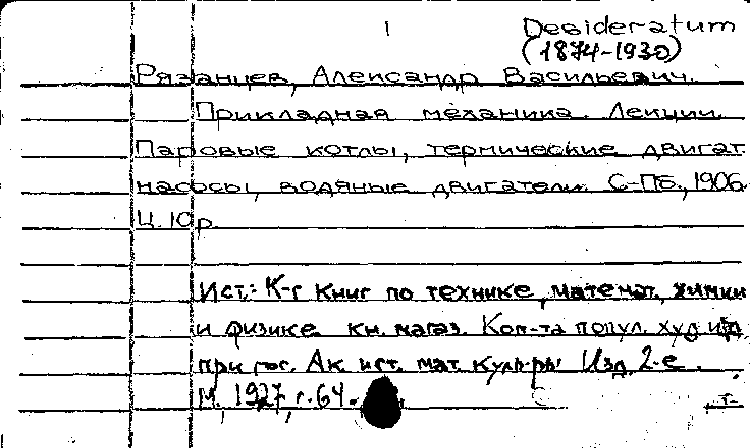 1 Desideratum
(1874-1930)
Рязанцев, Александр Васильевич.
Прикладная механика. Лекции.
Паровые котлы, термические двигат.
насосы, водяные двигатели. С-Пб., 1906.
Ц. 10 р.
Ист.: К-г книг по технике, математ., химии
и физике кн. магаз. Ком-та попул. худ. изд.
при гос. Ак. ист. мат. культ-ры. Изд. 2-е.
М. 1927, с. 64.